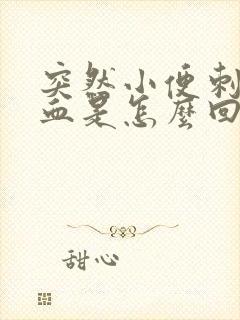 突然小便刺
血是怎麼回
甜心